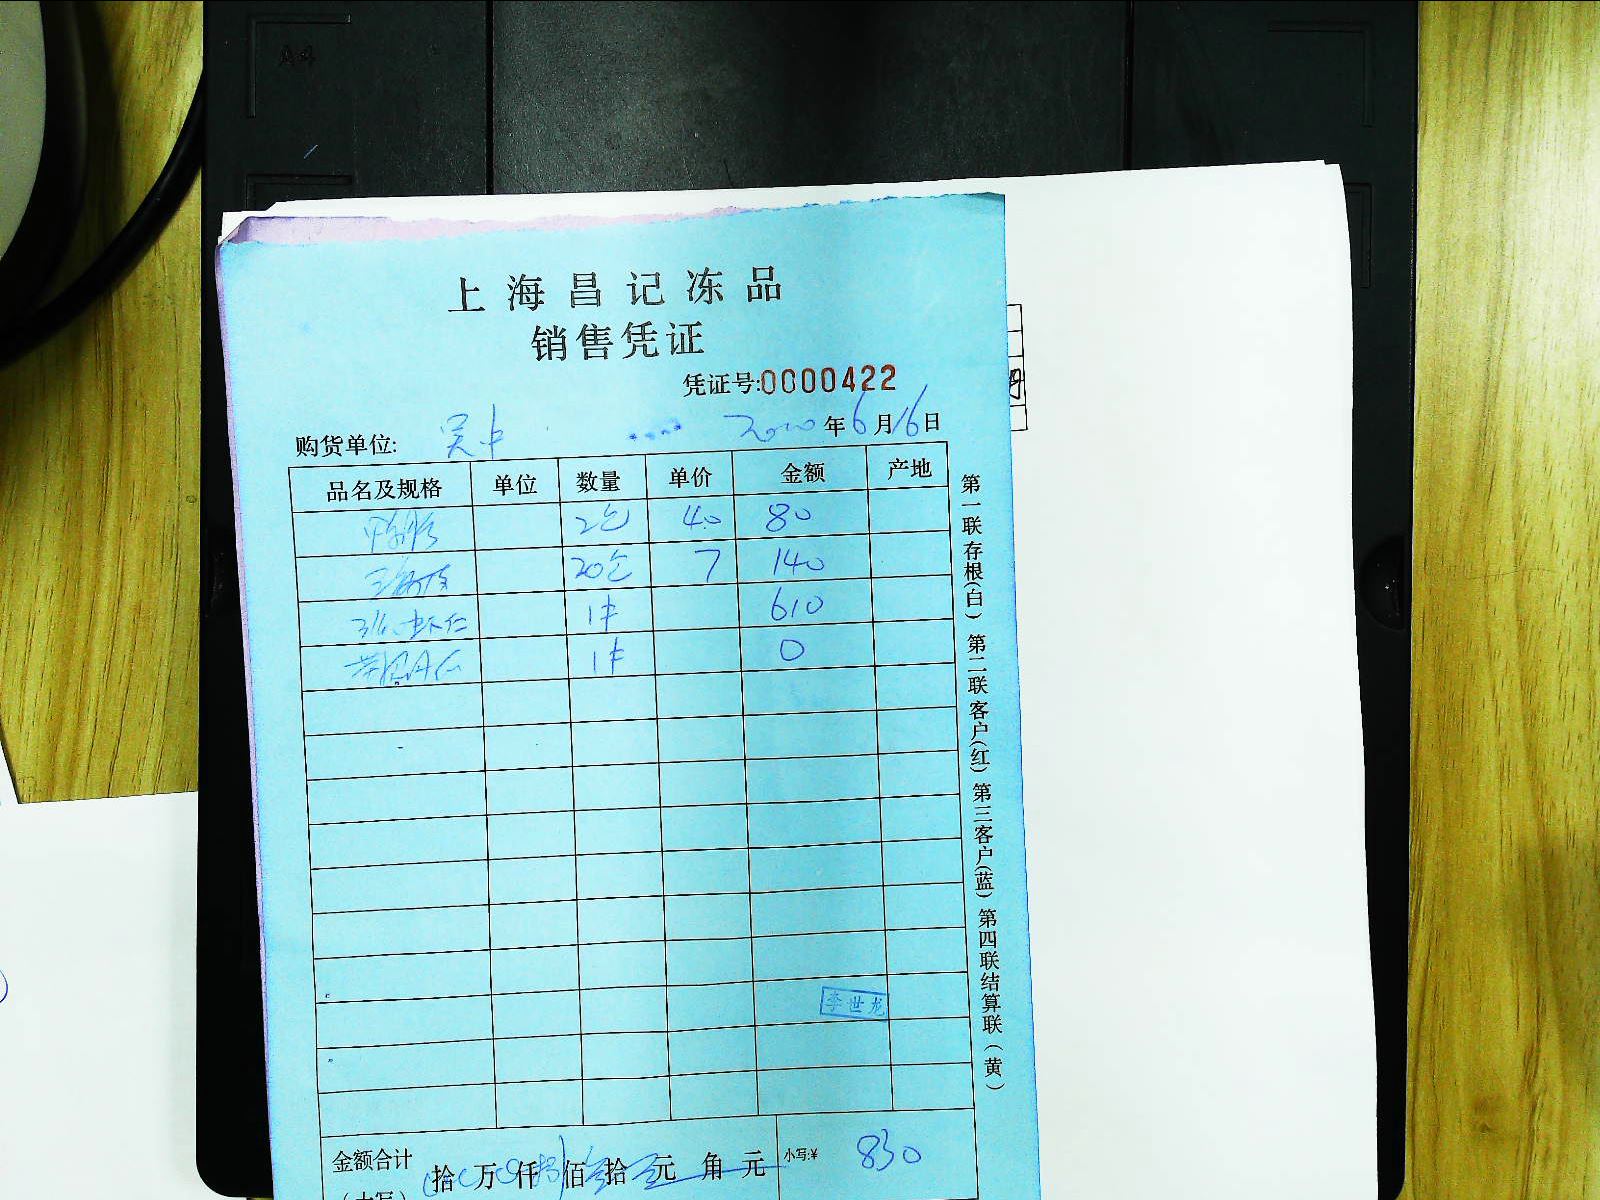 A4
上海昌记冻品
销售凭证
凭证号:0000422
购货单位: 吴中 年6月16日
品名及规格 单位 数量 单价 金额 产地
2包 40 80
20包 7 140
虾仁 1件 610
1件 0
第一联存根(白) 第二联客户(红) 第三客户(蓝) 第四联结算联(黄)
李世龙
金额合计 拾 万 仟 捌 佰 叁 拾 元 角 元 小写:¥ 830
(大写)